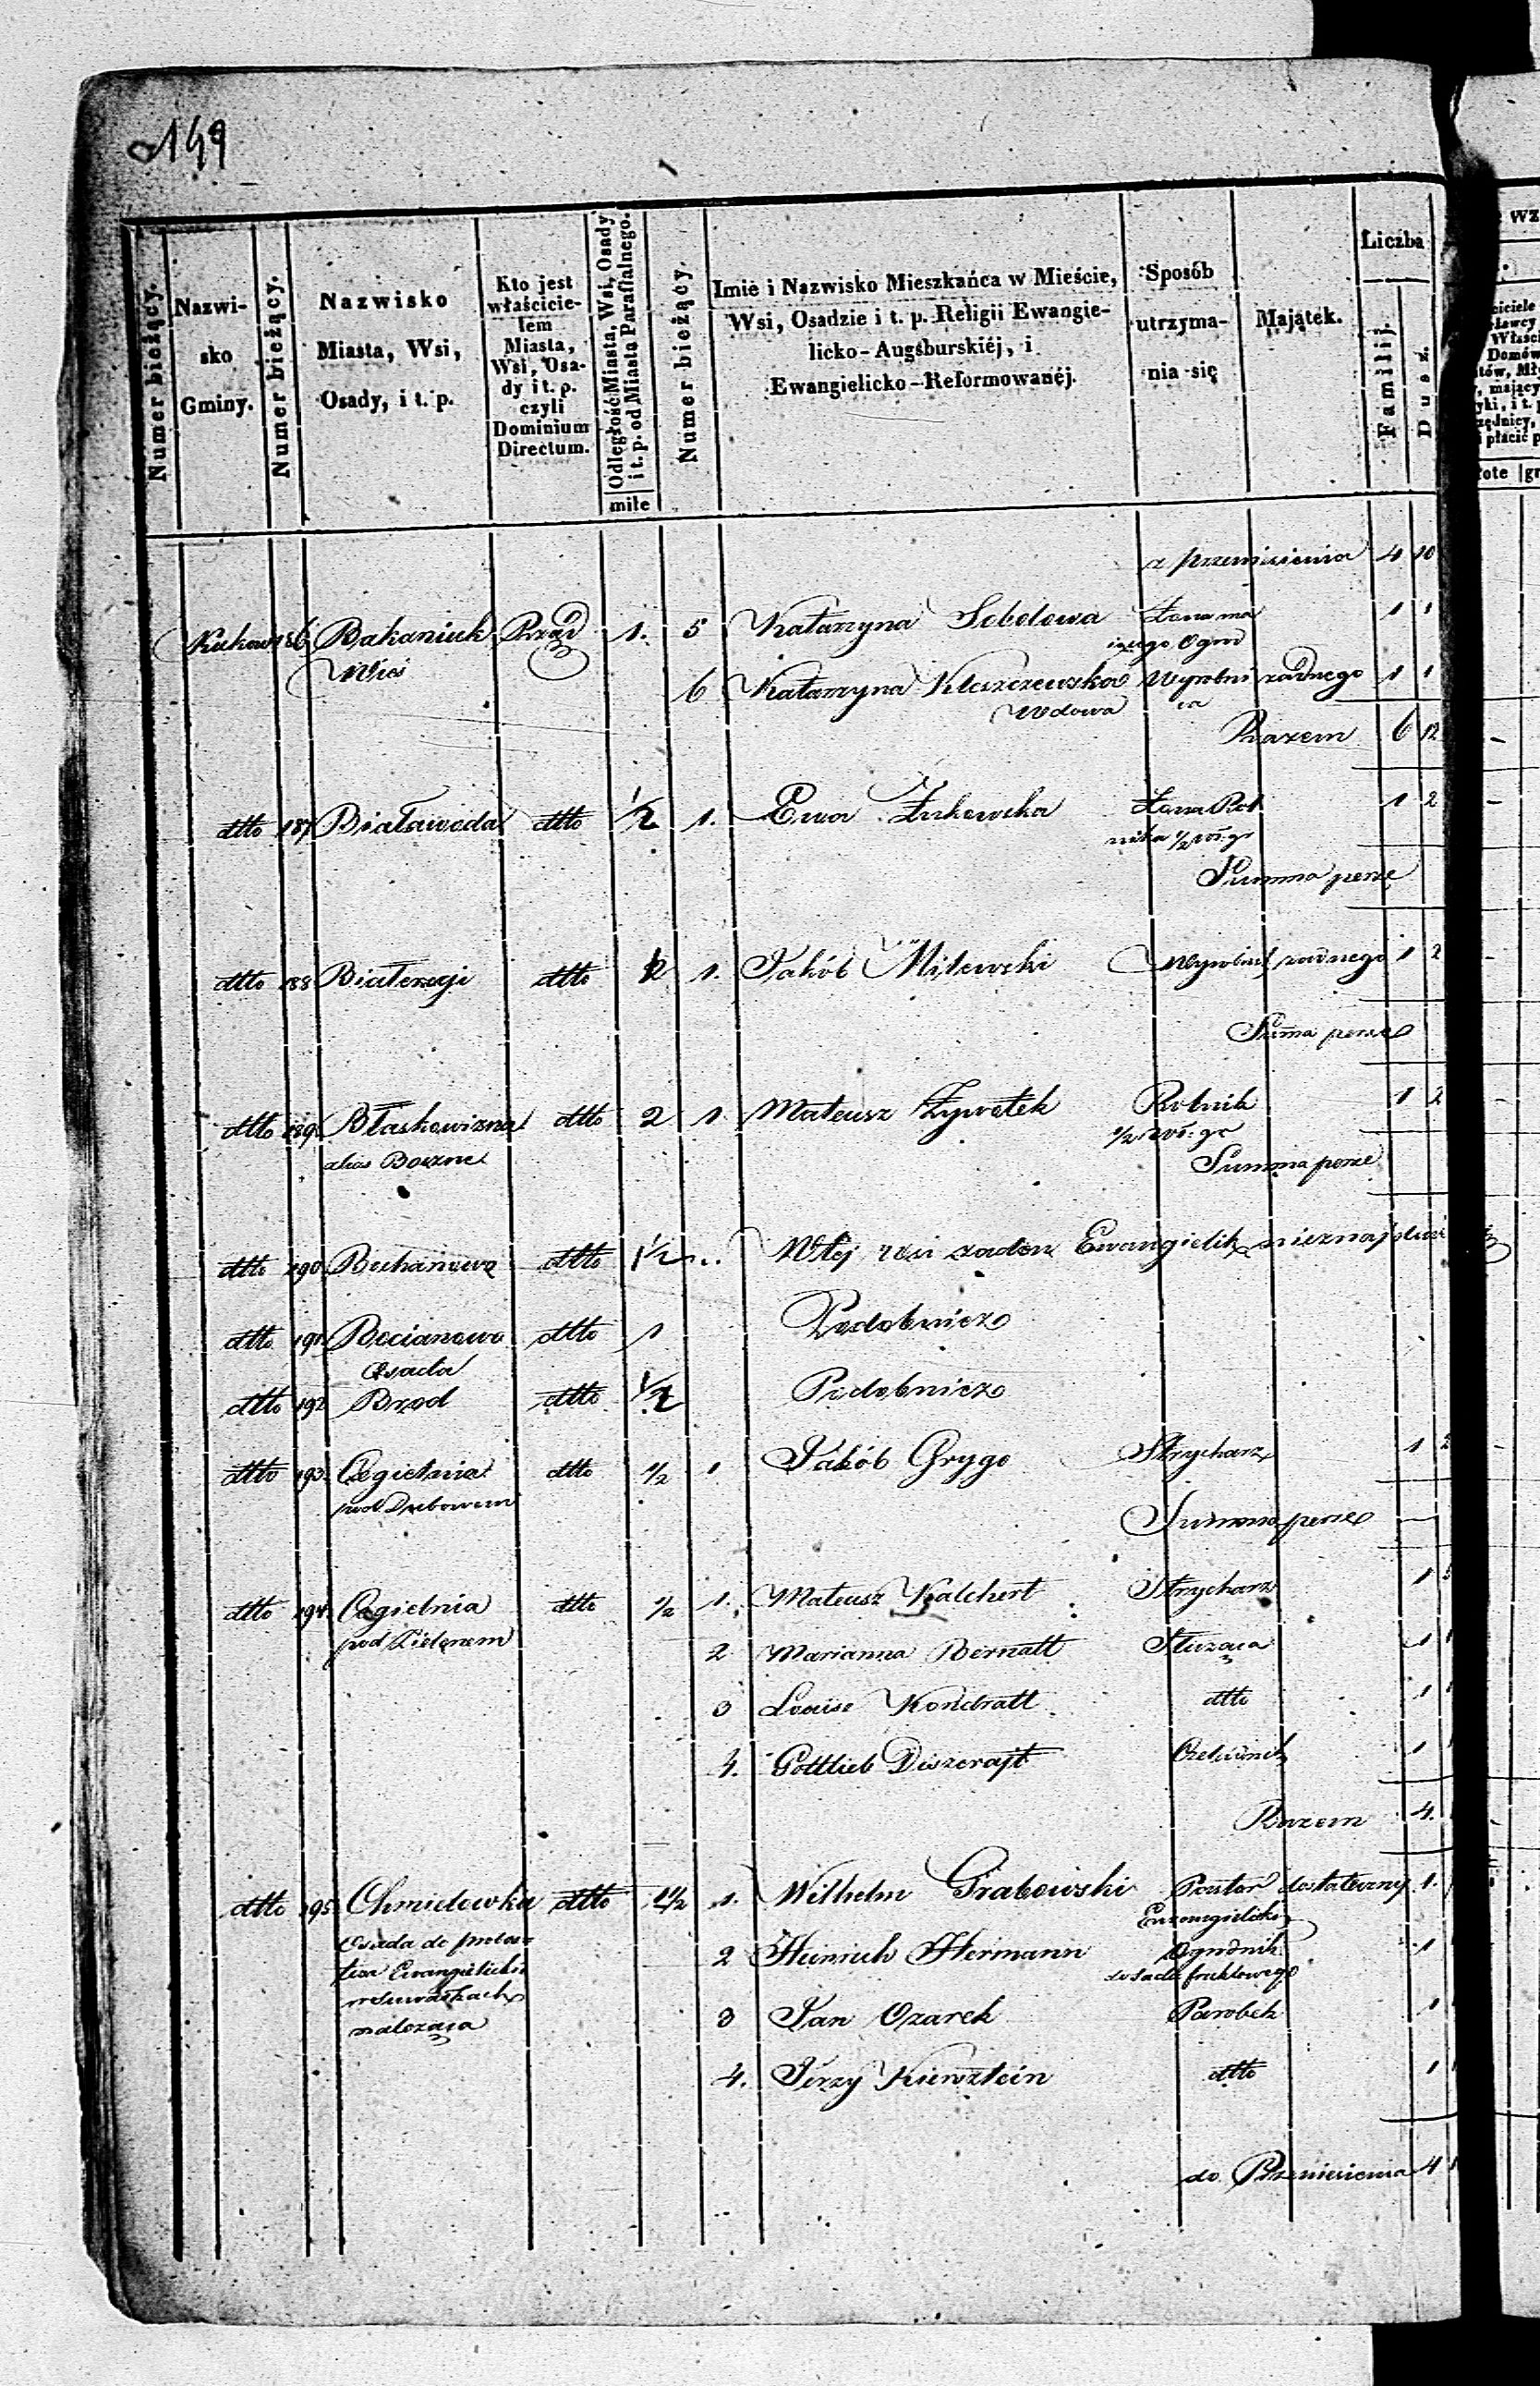 149
Numer bieżący.
Nazwi-
sko
Gminy.
Numer bieżący.
Nazwisko
Miasta, Wsi,
Osady, i t. p.
Kto jest
właścicie-
lem
Miasta,
Wsi, Osa-
dy i t. p.
czyli
Dominium
Directum.
Odległość Miasta, Wsi, Osady
i t. p. od Miasta Parafialnego.
mile
Numer bieżący.
Imie i Nazwisko Mieszkańca w Mieście,
Wsi, Osadzie i t. p. Religii Ewangie-
licko-Augsburskiéj, i
Ewangielicko-Reformowanéj.
Sposób
utrzyma-
nia się
Majątek.
Liczba
Familij.
Dusz.
z przeniesienia 4 10
Kukow 186 Bakaniuk Rząd 1. 5 Katarzyna Sobolowa Żona ma 1 1
Wieś
iącego Ogrod
6 Katarzyna Kleszczewska Wyrobni żadnego 1 1
Wdowa ca
Razem 6 12
dtto 187 Białawoda dtto 1/2 1. Ewa Żukowska Żona Rol 1 2
nika 1/2 wł. gr
Summa perse
dtto 188 Białerogi dtto 1/2 1. Jakób Milewski Wyrobnik żadnego 1 2
Suma perse
dtto 189 Błaskowizna dtto 2 1. Mateusz Żywotek Rolnik 1 2
alias Boczne 1/2 wł. gr
Summa perse
dtto 190 Bochanowo dtto 1 1/2 W tej wsi żaden Ewangielik nieznajduie
dtto 191 Bocianowo dtto 1 Podobnież
Osada
dtto 192 Brod dtto 1/2 Podobnież
dtto 193. Cegielnia dtto 1/2 1 Jakób Grygo Strycharz 1 2
pod Dubowem
Summa perse
dtto 194. Cegielnia dtto 1/2 1. Mateusz Kalchert Strycharz 1
pod
2 Marianna Bernatt Służąca 1 1
3 Louise Kondratt dtto 1 1
4. Gottlieb Diszerajt Czeladnik 1
Razem 4.
dtto 195 Chmielowka dtto 1 1/2 1. Wilhelm Grabowski Pastor dostateczny 1.
Ewangielicki
Osada do probos-
twa Ewangielickie
w Suwałkach
należąca
2 Heinrich Hermann Ogrodnik 1
do sadu fruktowego
3 Jan Ozarek Parobek 1
4. Jerzy Kiersztein dtto 1
do Przeniesienia 4